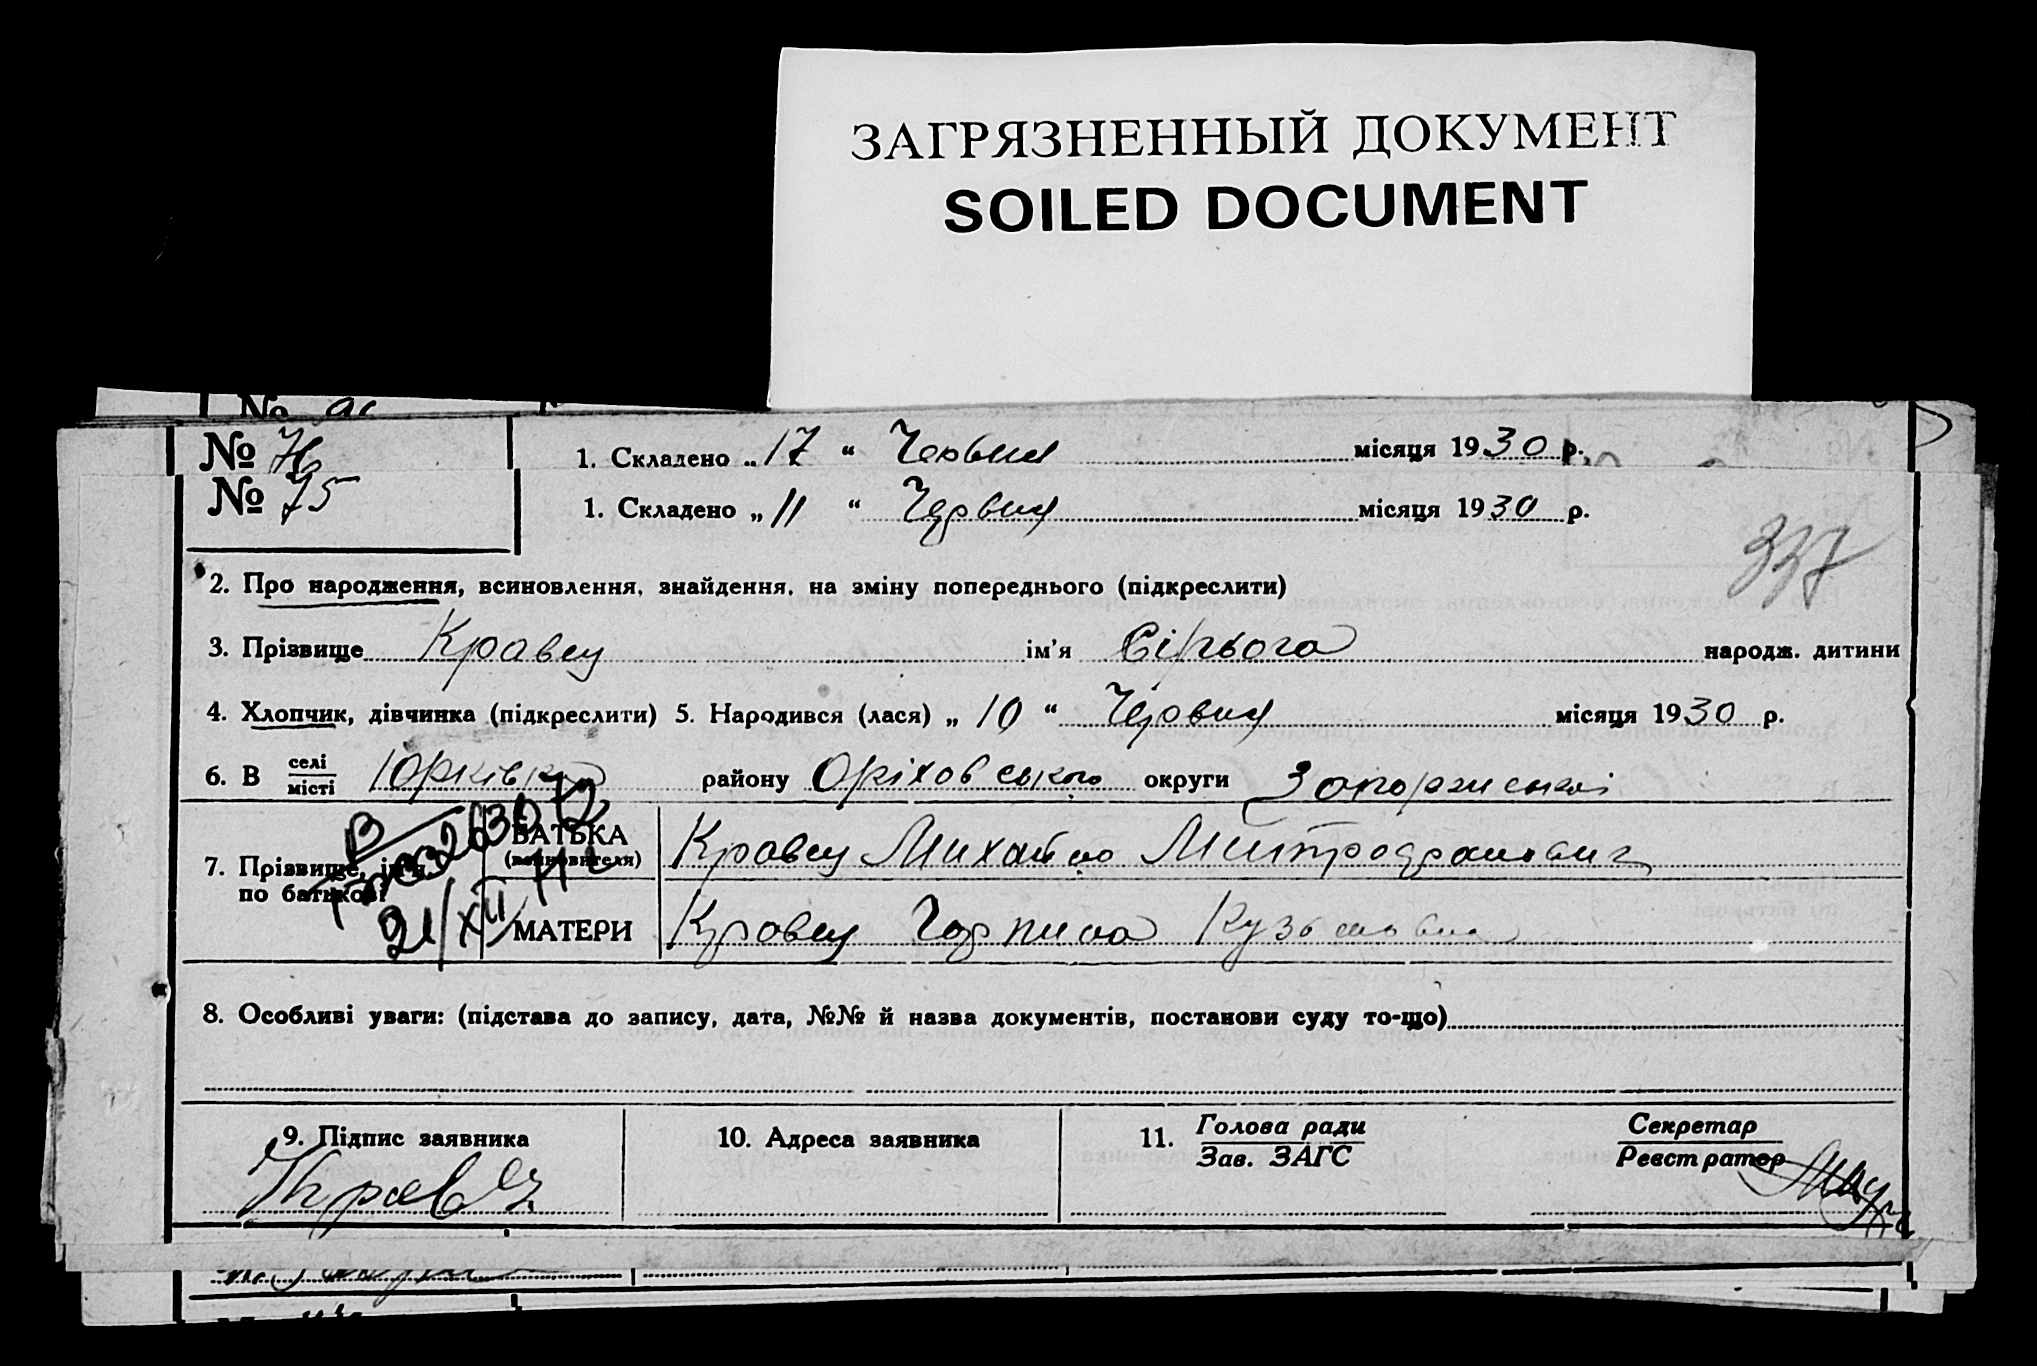 ЗАГРЯЗНЕННЫЙ ДОКУМЕНТ
SOILED DOCUMENT
№
1. Складено „ 17 “ Червня місяця 1930 р.
№ 75
1. Складено „ 11 “ Червня місяця 1930 р.
337
2. Про народження, всиновлення, знайдення, на зміну попереднього (підкреслити)
3. Прізвище Кравец ім'я Сірьога народж. дитини
4. Хлопчик, дівчинка (підкреслити) 5. Народився (лася) „ 10 “ Червня місяця 1930 р.
6. В селі місті Юрківка району Оріховського округи Запорізької
7. Прізвище, ім'я, по батькові
БАТЬКА (всиновителя) Кравец Михайло Митрофанович
МАТЕРИ Кравец Горпина Кузьмовна
21/XII
8. Особливі уваги: (підстава до запису, дата, №№ й назва документів, постанови суду то-що)
9. Підпис заявника 10. Адреса заявника 11. Голова ради Зав. ЗАГС Секретар Реєстратор
Кравец